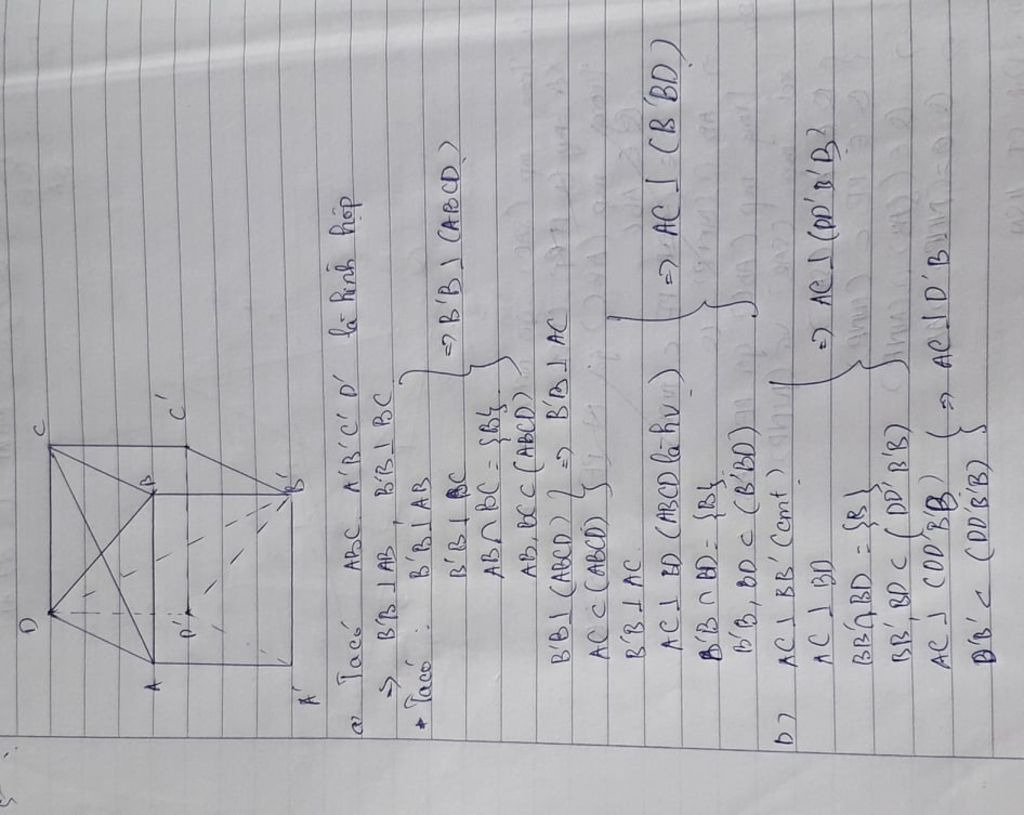 D
C
A
B
D'
C'
A'
B'
a) Ta có ABC A'B'C'D' là hình hộp
=> B'B ⊥ AB, B'B ⊥ BC
* Ta có: B'B ⊥ AB
B'B ⊥ BC
AB ∩ BC = {B}
AB, BC ⊂ (ABCD)
} => B'B ⊥ (ABCD)
B'B ⊥ (ABCD)
AC ⊂ (ABCD)
} => B'B ⊥ AC
B'B ⊥ AC
AC ⊥ BD (ABCD là hv)
B'B ∩ BD = {B}
B'B, BD ⊂ (B'BD)
} => AC ⊥ (B'BD)
b) AC ⊥ BB' (cmt)
AC ⊥ BD
BB' ∩ BD = {B}
BB', BD ⊂ (DD'B'B)
} => AC ⊥ (DD'B'B)
AC ⊥ (DD'B'B)
D'B' ⊂ (DD'B'B)
} => AC ⊥ D'B'